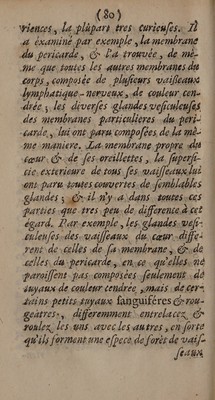 (80)
riences, la plûpart tres curieuses. Il
a examiné par exemple, la membrane
du pericarde, & l'a trouvée, de mê-
me que toutes les autres membranes du
corps, composée de plusieurs vaisseaux
lymphatique-nerveux, de couleur cen-
drée; les diverses glandes vesiculeuses
des membranes particulières du peri-
carde, lui ont paru composées de la mê-
me maniere. La membrane propre du
cœur & de ses oreillettes, la superfi-
cie exterieure de tous ses vaisseaux lui
ont paru toutes couvertes de semblables
glandes; & il n'y a dans toutes ces
parties que tres peu de difference à cet
égard. Par exemple, les glandes vesi-
culeuses des vaisseaux du cœur diffe-
rent de celles de sa membrane, & de
celles du pericarde, en ce qu'elles ne
paroissent pas composées seulement de
tuyaux de couleur cendrée, mais de cer-
tains petits tuyaux sanguiféres & rou-
geâtres, differemment entrelacez &
roulez les uns avec les autres, en sorte
qu'ils forment une espece de forêt de vais-
seaux